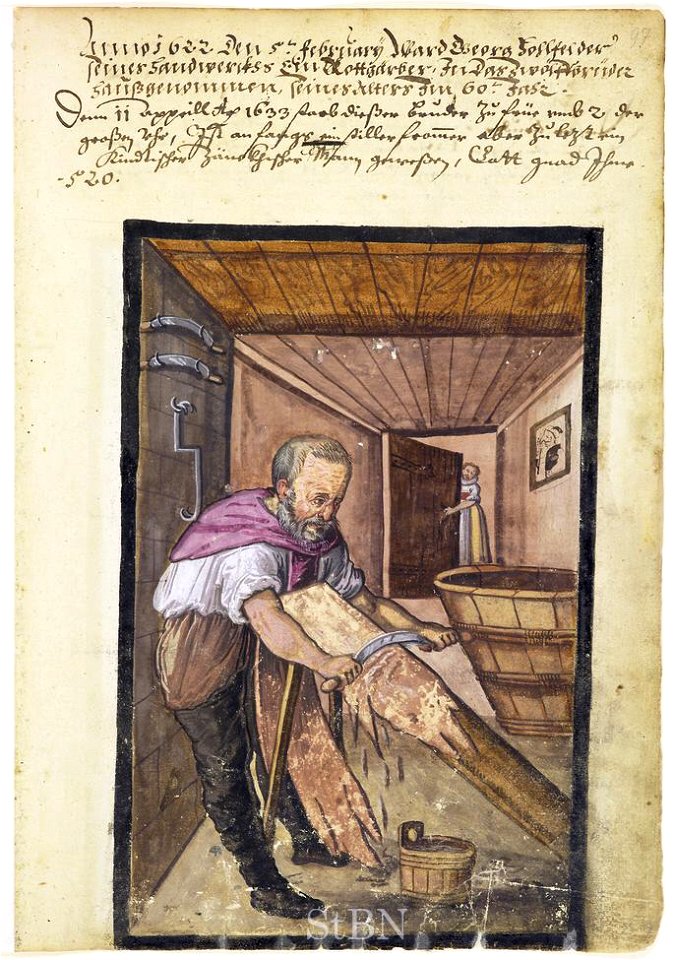 Anno 1622 Den 5ᵗ February Ward Georg Zohlfelder
seines Handwerkhs Ein Rottgärber, In das Zwölffbrüder
Haußgenommen, seines Alters Im 60ᵗ Jahr.
Denn 11 apprill Aõ 1633 starb dießer bruder Zu früe umb 2 der
großen Uhr, Ist an fangs ein stiller frommer aber Zu letzt ein
Kindtischer Zänckhischer Mann geweßen, Gott gnad Ihme.
520.
97
StBN